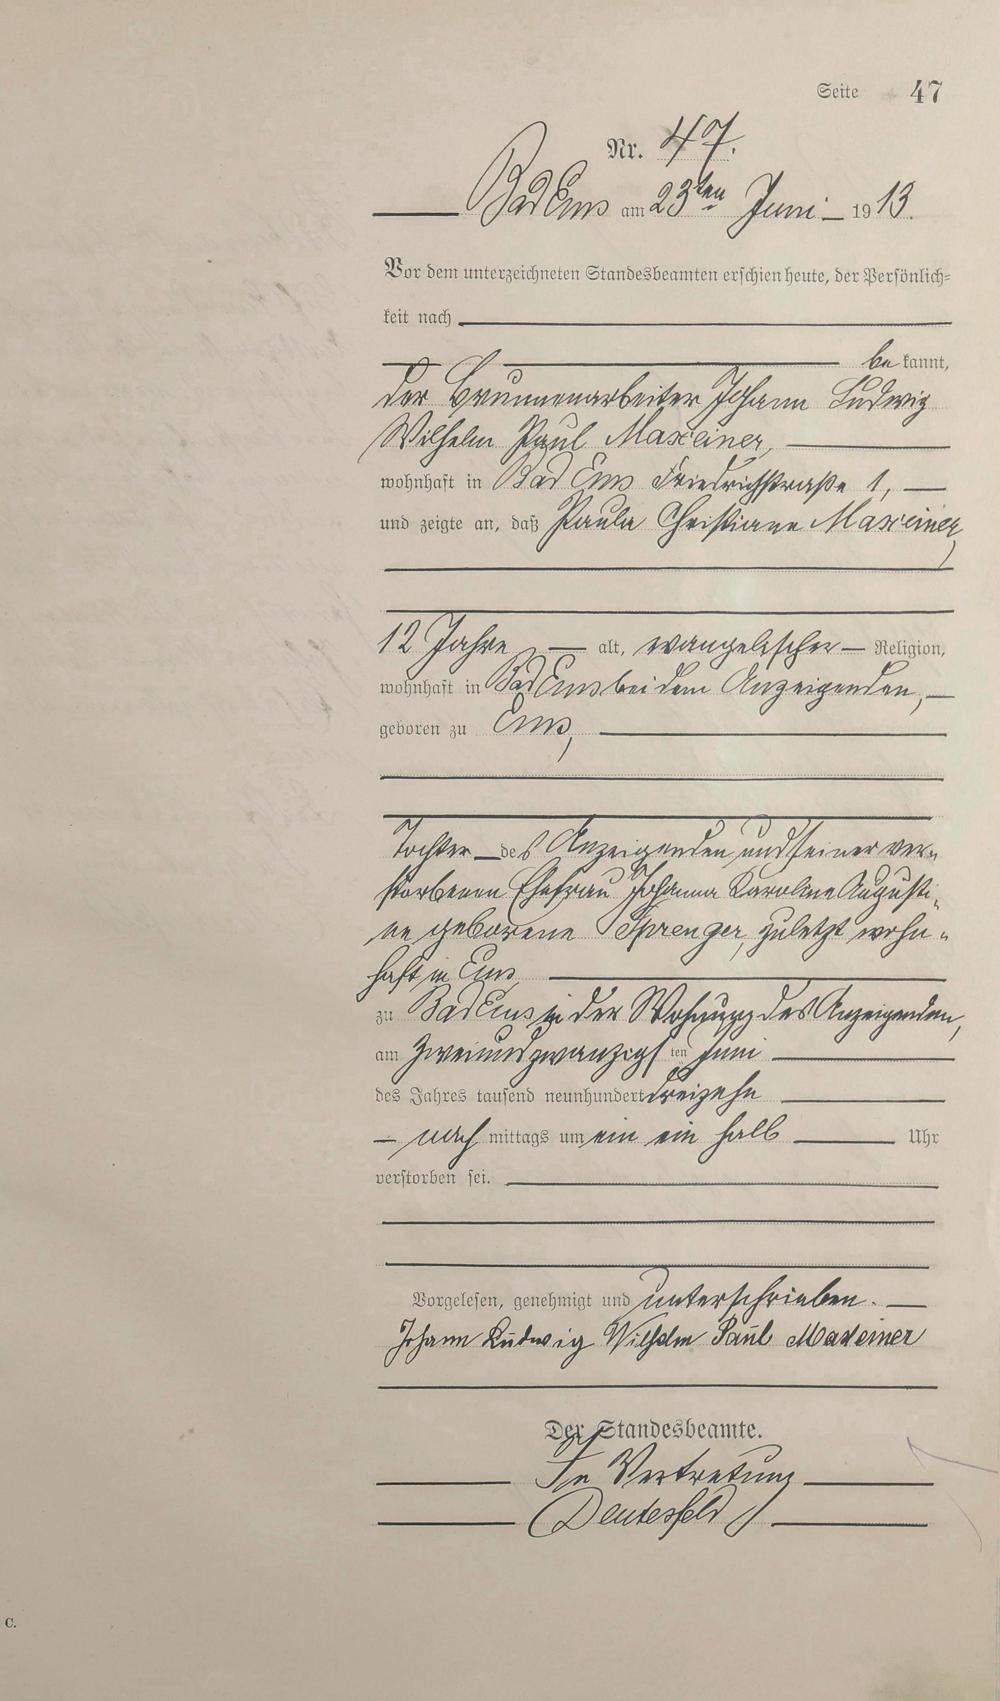 Seite 47
Nr. 47.
Bad Ems am 23ten Juni 1913.
Vor dem unterzeichneten Standesbeamten erschien heute, der Persönlich-
keit nach
bekannt,
der Brunnenarbeiter Johann Ludwig
Wilhelm Paul Maxeiner,
wohnhaft in Bad Ems Friedrichstraße 1,
und zeigte an, daß Paula Christiane Maxeiner,
12 Jahre alt, evangelischer Religion,
wohnhaft in Bad Ems bei dem Anzeigenden,
geboren zu Ems,
Tochter des Anzeigenden und seiner ver-
storbenen Ehefrau Johanna Karoline Augusti-
ne geborene Sprenger, zuletzt wohn-
haft in Ems
zu Bad Ems in der Wohnung des Anzeigenden,
am zweiundzwanzigsten Juni
des Jahres tausend neunhundert dreizehn
nachmittags um ein ein halb Uhr
verstorben sei.
Vorgelesen, genehmigt und unterschrieben.
Johann Ludwig Wilhelm Paul Maxeiner
Der Standesbeamte.
In Vertretung
Deutesfeld
C.